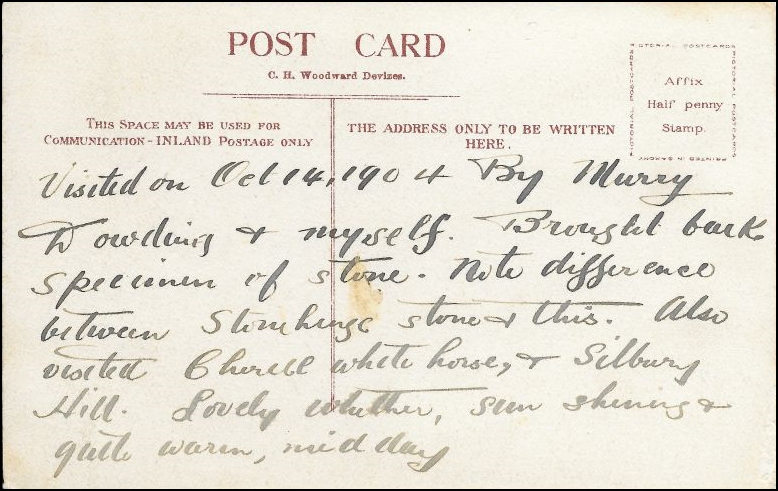 POST CARD
C. H. Woodward Devizes.
PICTORIAL POSTCARDS
PICTORIAL POSTCARDS
PICTORIAL POSTCARDS
PRINTED IN SAXONY
Affix
Half penny
Stamp.
THIS SPACE MAY BE USED FOR
COMMUNICATION - INLAND POSTAGE ONLY
THE ADDRESS ONLY TO BE WRITTEN
HERE.
Visited on Oct 14, 1904 By Murry
Dowding & myself. Brought back
specimen of stone. Note difference
between Stonehenge stone & this. Also
visited Cherill white horse, & Silbury
Hill. Lovely whether, sun shining &
quite warm, mid day